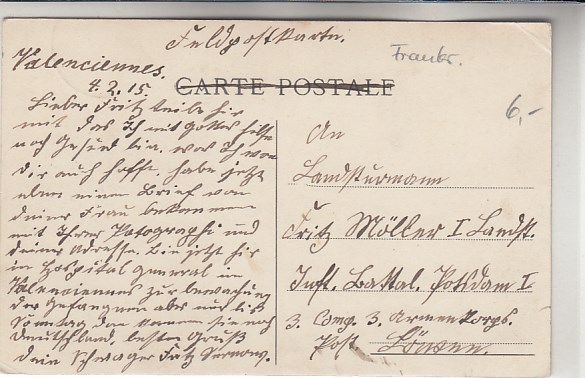 Feldpostkarte.
Frankr.
Valenciennes.
4.2.15.
CARTE POSTALE
6,-
Lieber Fritz teile dir
mit das Ich mit Gottes hilfe
noch gesund bin. was Ich von
dir auch hoffe. habe jetzt
eben einen Brief von
deiner Frau bekommen
mit Ihrer Photographi und
deiner Adresse. bin jetzt hir
in Hospital general in
Valenciennes zur bewachung
der Gefangnen aber nur bis
Sonntag dan kommen sie nach
Deutschland, besten Gruß
dein Schwager Fritz
An
Landsturmann
Fritz Möller I Landst.
Inft. Battal. Potsdam I
3. Comp. 3. Armeekorps.
Post. Löwen.